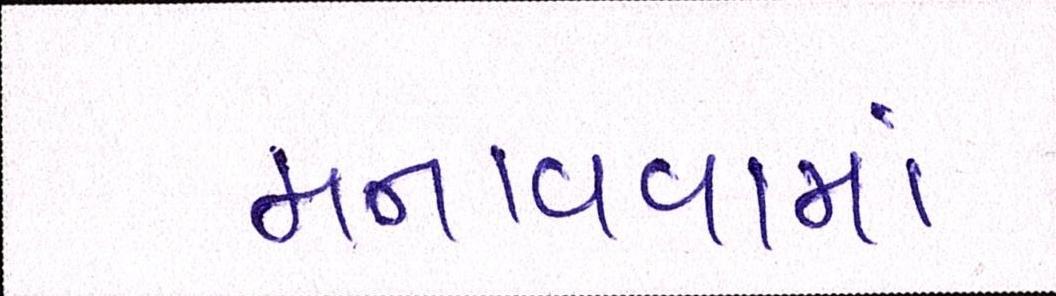 મનાવવામાં